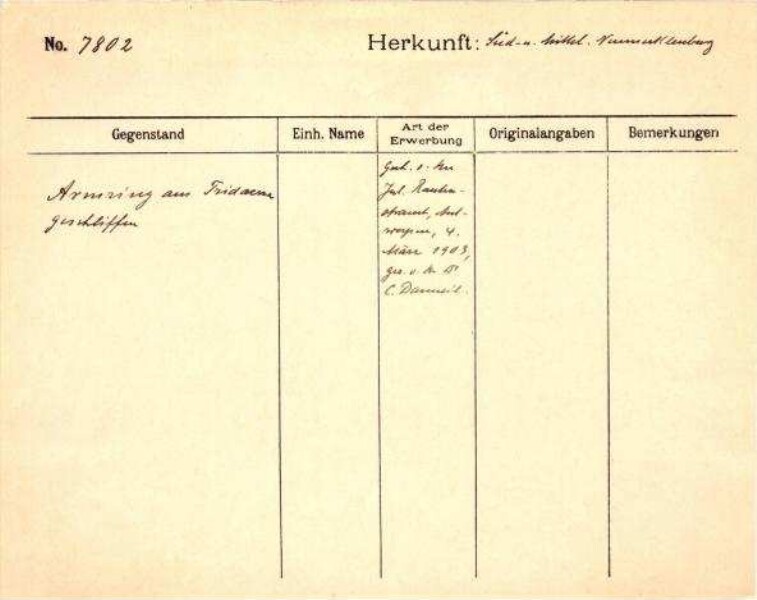 No. 7802
Herkunft: Süd- u. Mittel. Neumecklenburg
Gegenstand
Einh. Name
Art der
Erwerbung
Originalangaben
Bemerkungen
Armring aus Tridacna
geschliffen
Gesch. v. Hrn
Jul. Rauten-
strauch, Ant-
werpen, 4.
März 1903,
ges. v. Hr. Dr.
C. Danneil.